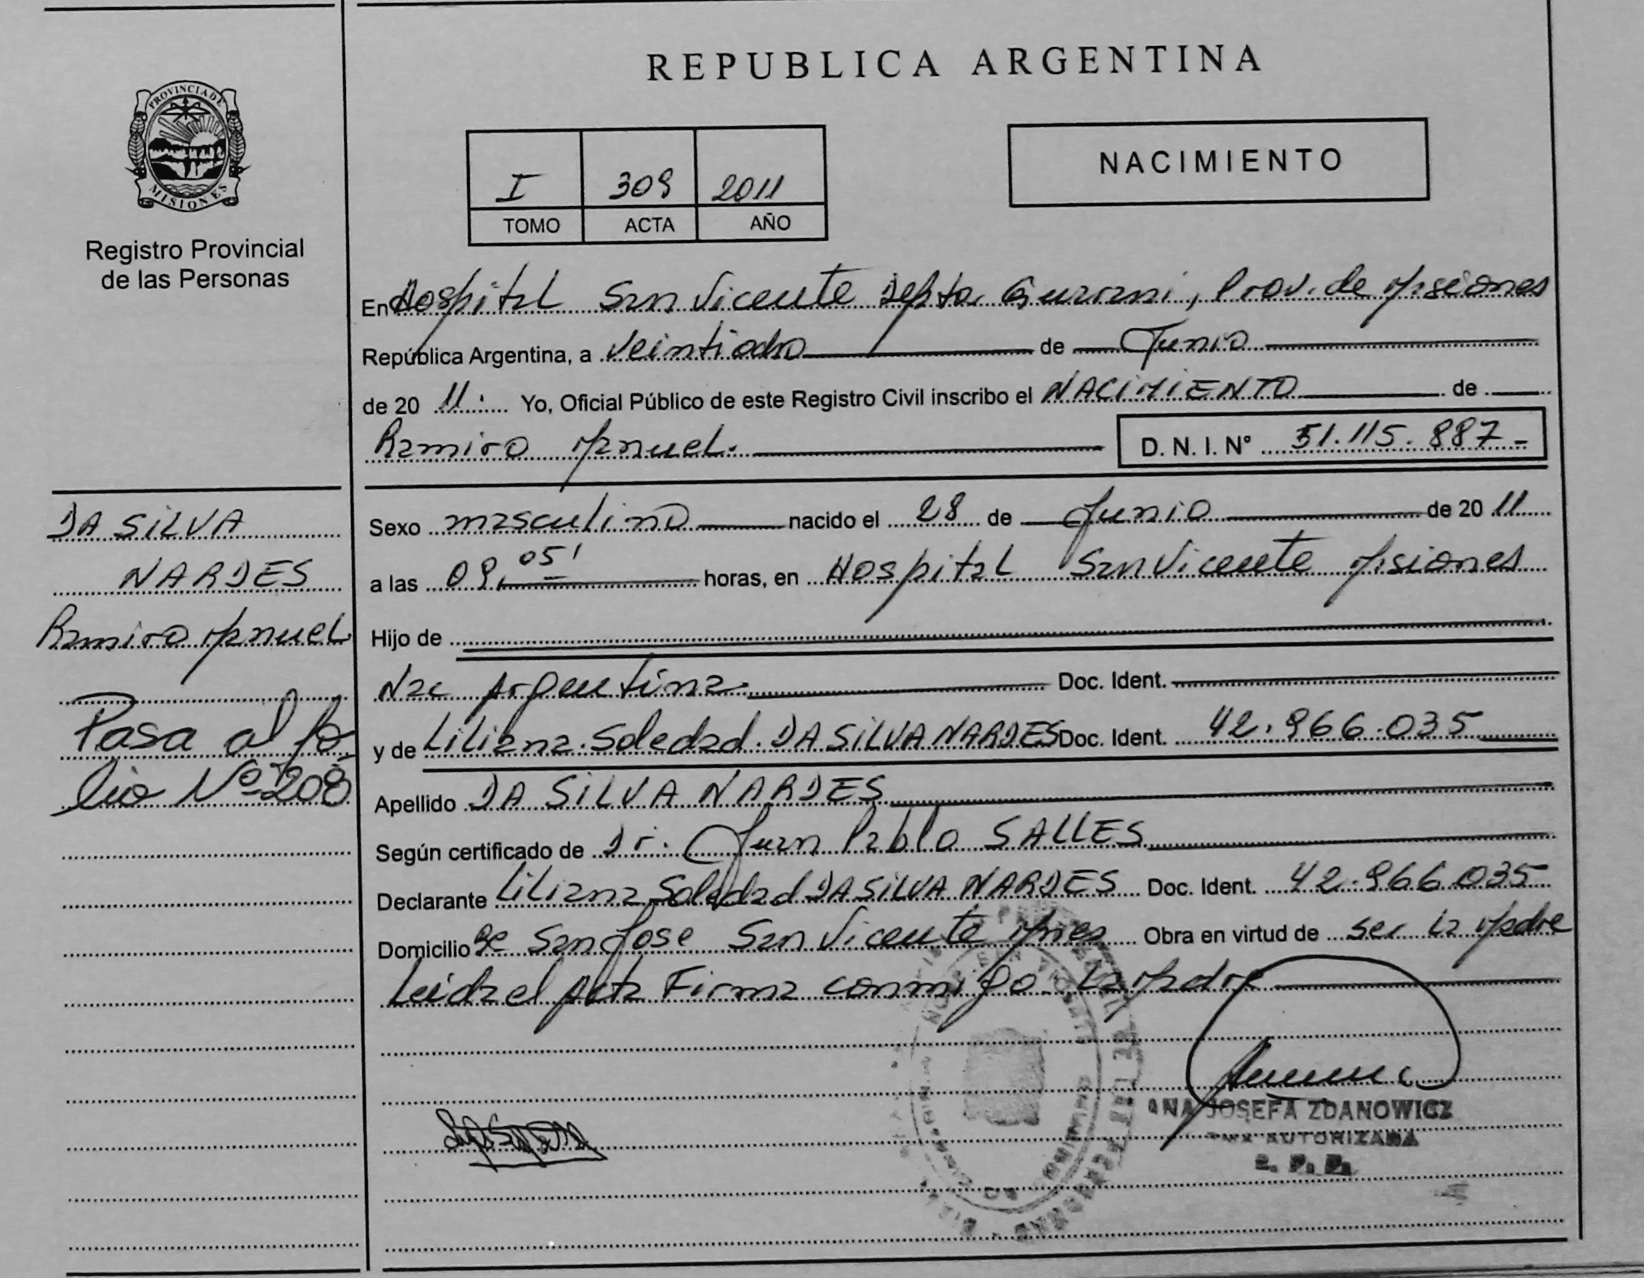 REPUBLICA ARGENTINA
PROVINCIA DE
MISIONES
Registro Provincial
de las Personas
I 309 2011
TOMO ACTA AÑO
NACIMIENTO
En Hospital San Vicente Depto. Guarani, Prov. de Misiones
República Argentina, a Veintiocho de Junio
de 20 11. Yo, Oficial Público de este Registro Civil inscribo el NACIMIENTO de
Ramiro Manuel. D. N. I. Nº 51.115.887-
DA SILVA
NARDES
Ramiro Manuel
Pasa al fo
lio Nº 208
Sexo masculino nacido el 28 de Junio de 20 11
a las 09,05' horas, en Hospital San Vicente Misiones
Hijo de
Nac Argentina. Doc. Ident.
y de Liliana Soledad DA SILVA NARDES Doc. Ident. 42.966.035
Apellido DA SILVA NARDES
Según certificado de Dr. Juan Pablo SALLES
Declarante Liliana Soledad DA SILVA NARDES Doc. Ident. 42.966.035
Domicilio San Jose San Vicente Mnes Obra en virtud de ser la Madre
Leida el Acta Firma conmigo La Madre
ANA JOSEFA ZDANOWICZ
AUTORIZADA